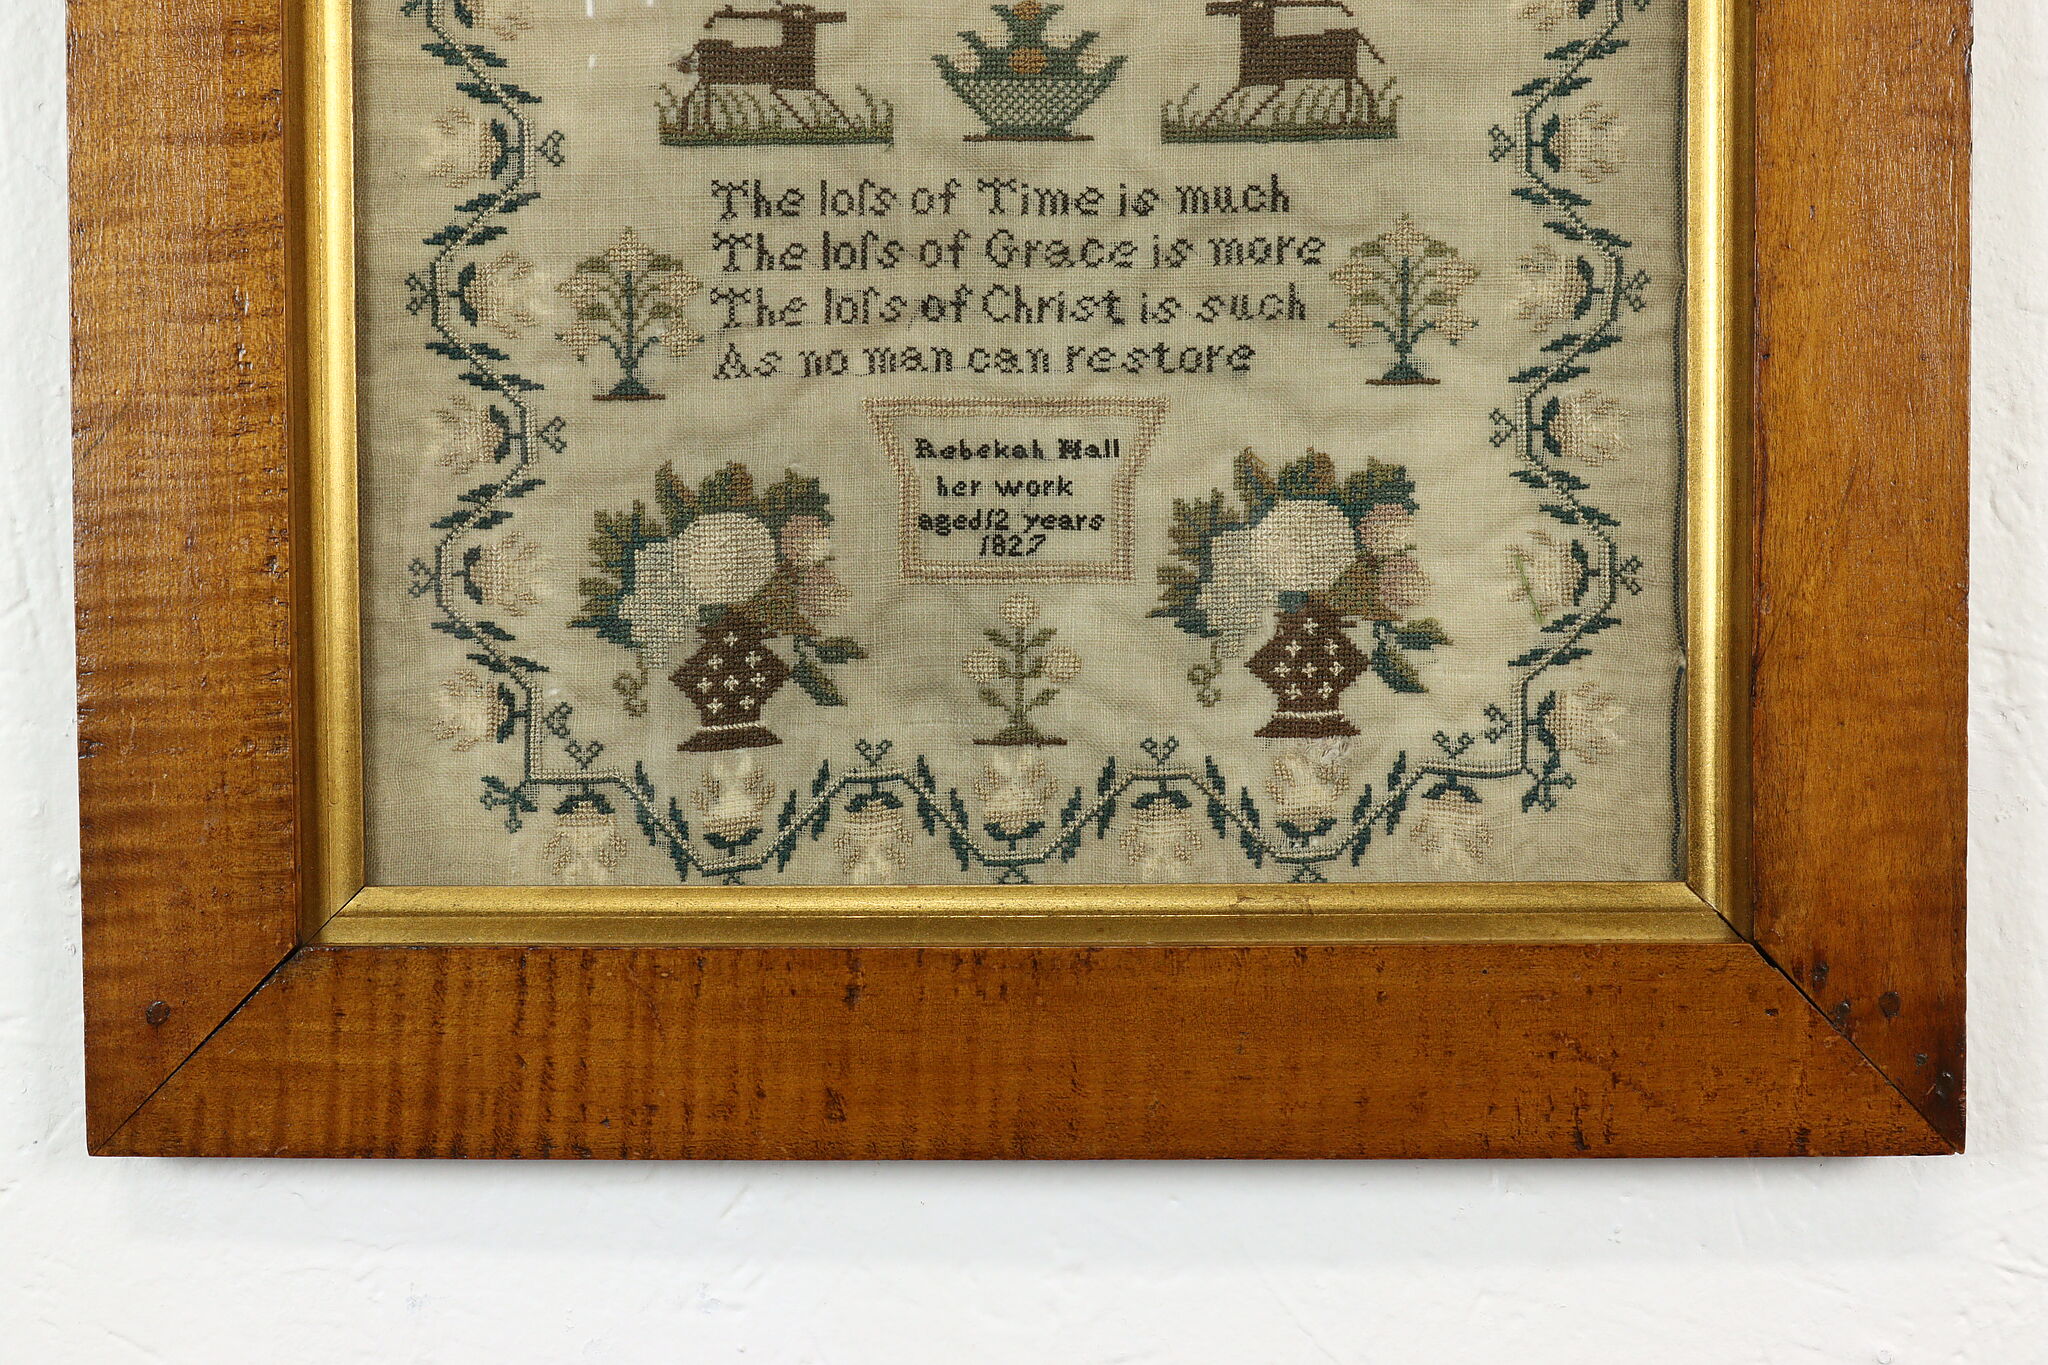 The loſs of Time is much
The loſs of Grace is more
The loſs of Christ is such
As no man can restore
Rebekah Hall
her work
aged 12 years
1827